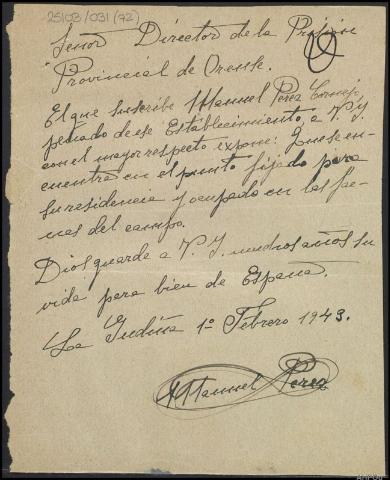 25103/031(72)
Señor Director de la Prisión
Provincial de Orense.
El que suscribe Manuel Perez Cornejo,
penado de ese Establecimiento, a V. Y.
con el mayor respecto expone: Que se en-
cuentra en el punto fijado para
su residencia y ocupado en las fae-
nas del campo.
Dios guarde a V. Y. muchos años su
vida para bien de España.
La Gudiña 1º Febrero 1943.
Manuel Perez